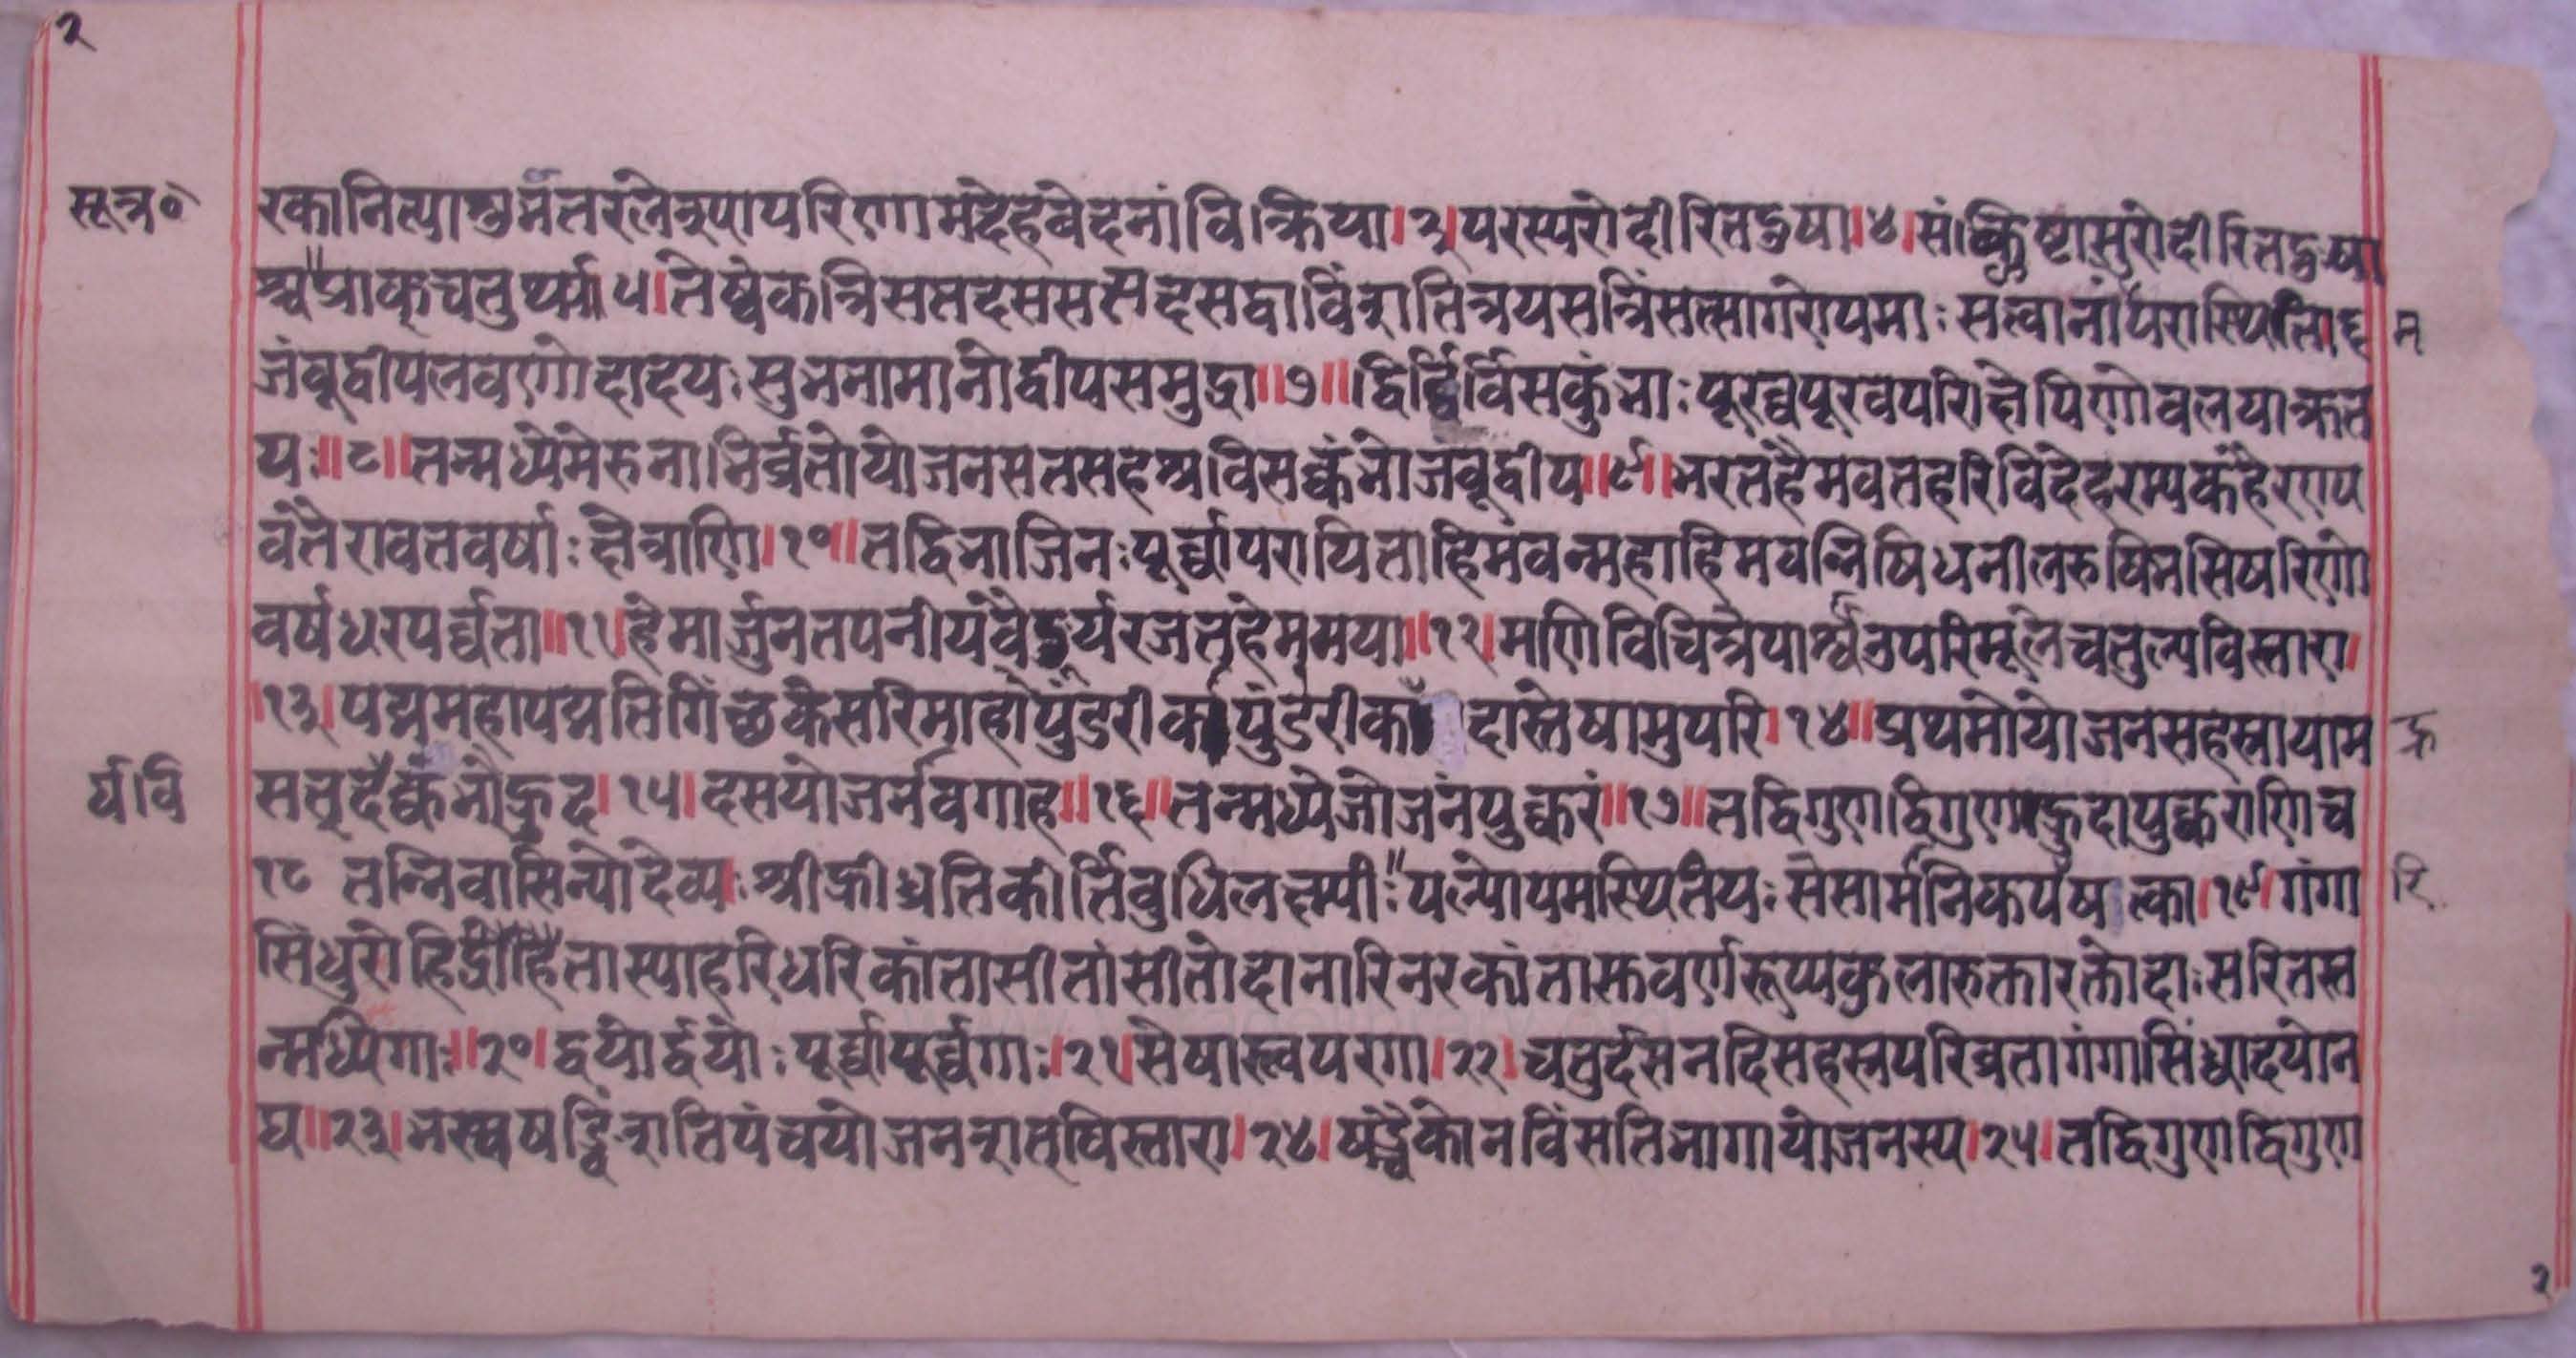 २
सूत्र०
रकानित्याशुभतरलेश्यापरिणामदेहवेदनांविक्रिया।३।परस्परोदीरितदुषा।४।संक्लिष्टासुरोदीरितदुःषा
श्चप्राक्चतुर्थ्या।५।तेष्वेकत्रिसप्तदससप्तदसद्वाविंशतित्रयसत्रिंसत्सागरोपमाःसत्वानांपरास्थिति।६ म
जंबूद्वीपलवणोदादयःसुभनामानोद्वीपसमुद्रा॥७॥द्विर्द्विर्विसकुंभाःपूरव्वपूरवपरिक्षेपिणोवलयाक्रत
यः॥८॥तन्मध्येमेरुनाभिर्व्रतोयोजनसतसहश्रविसक्कंभोजंबूद्वीप॥९॥भरतहैमवतहरिविदेहरम्यकहैरण्य
वतैरावतवर्षाःक्षेत्राणि।१०॥तद्विभाजिनःपूर्व्वापरायिताहिमवन्महाहिमवन्निषिधनीलरुषिमसिषरिणो
वर्षधरपर्व्वता॥११।हेमार्जुनतपनीयवैडूर्यरजतहेममया॥१२।मणिविचित्रपार्श्वउपरिमूलेचतुल्यविस्तारा।
।१३।पद्ममहापद्मतिगिंच्छकेसरिमाहापुंडरीकपुंडरीका दास्तेषामुपरि।१४॥प्रथमोयोजनसहस्रायाम ह्र
र्धवि
सतदैक्कंभोह्रद।१५।दसयोजनवगाह॥१६॥तन्मध्येजोजनंपुक्करं॥१७॥तद्विगुणद्विगुणाह्रदापुक्कराणिच
१८ तन्निवासिन्योदेव्यःश्रीह्रीध्रतिकीर्तिबुधिलक्ष्मीःपल्योपमस्थितियःससामनिकपषत्का।१९।गंगा रि
सिंधुरोहिद्रोहितास्याहरिधरिकांतासीतासीतोदानारिनरकांतास्रवर्णरूप्यकुलारुक्तारक्तोदाःसरितस्त
न्मध्यिगाः॥२०।द्वयोर्द्वयोःपूर्व्वापूर्व्वगाः।२१।सेषास्त्वपरगा।२२।चतुर्दसनदिसहस्रपरिव्रतागंगासिंध्वादयोन
घ॥२३।भरस्वषड्विंशतिपंचयोजनशतविस्तारा।२४।षड्चैकोनविंसतिभागायोजनस्य।२५।तद्विगुणद्विगुण
२